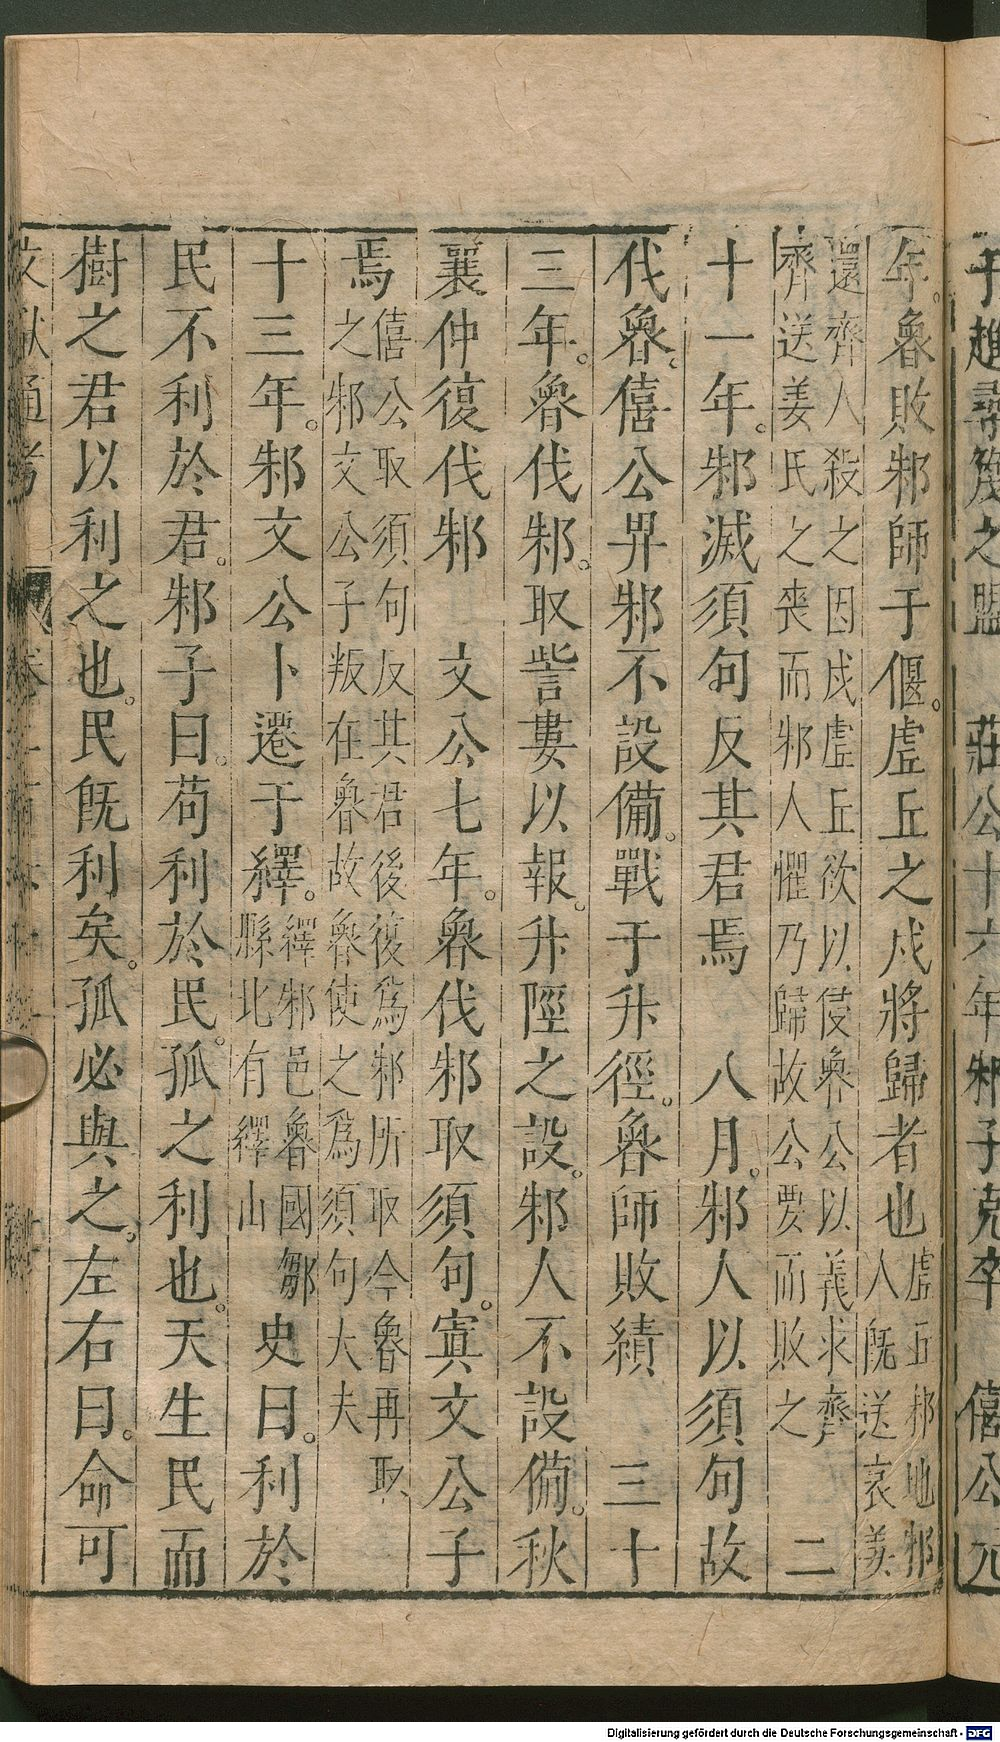 子趙尋蔑之盟　莊公十六年邾子克卒　僖公元
年魯敗邾師于偃虛丘之戍將歸者也虛丘邾地邾
人既送哀姜
還齊人殺之因戍虛丘欲以侵魯公以義求齊
齊送姜氏之喪而邾人懼乃歸故公要而敗之　二
十一年邾滅須句反其君焉　八月邾人以須句故
伐魯僖公卑邾不設備戰于升徑魯師敗績　三十
三年魯伐邾取訾婁以報升陘之設邾人不設備秋
襄仲復伐邾　文公七年魯伐邾取須句寘文公子
焉僖公取須句反其君後復爲邾所取今魯再取
之邾文公子叛在魯故魯使之爲須句大夫
十三年邾文公卜遷于繹繹邾邑魯國鄒
縣北有繹山史曰利於
民不利於君邾子曰苟利於民孤之利也天生民而
樹之君以利之也民既利矣孤必與之左右曰命可
文獻通考
Digitalisierung gefördert durch die Deutsche Forschungsgemeinschaft - DFG